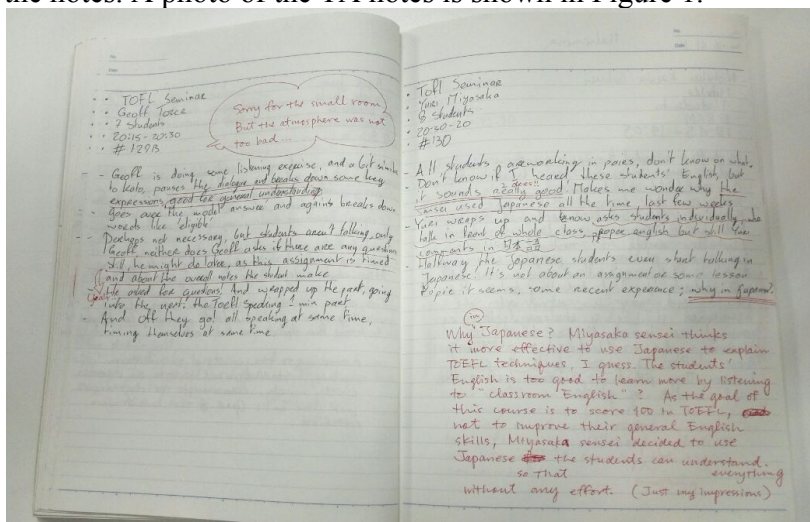 the notes. A photo of the TA notes is shown in Figure 1.
TOFL Seminar
Geoff
? students
20:15 - 20:30
# 129B
Sorry for the small room
But the atmosphere was not
too bad...
- Geoff is doing some listening exercise, and a bit similar
to kato, pauses the dialogue and breaks down some key
expressions, good for general understanding
- Goes over the model answer and agains breaks down
words like eligible.
- Perhaps not necessary, but students aren't talking, only
Geoff, neither does Geoff asks if there are any question
still, he might do later, as this assignment is timed
and about the overall notes the student make
He asked for questions, And wrapped up the part, going
into the next: the Toefl Speaking 1 min part
- And off they go! all speaking at same time,
timing themselves at same time
Tofl Seminar
Yuri, Miyasaka
8 students
20:30 -20
#130
- All students are working in pairs, don't know on what.
Don't know if I heard these students' English, but
it sounds really good does!! Makes me wonder why the
sensei used Japanese all the time, last few weeks
- Yuri wraps up and asks students individually
talk in front of whole class, english but still Yuri
comments in 日本語
- Halfway the Japanese students even start talking in
Japanese! It's not about an assignment or some lesson
it seems, some recent experience; why in Japanese?
Why Japanese? Miyasaka sensei thinks
it more effective to use Japanese to explain
TOEFL techniques, I guess. The students'
English is too good to learn more by listening
to "classroom English"? As the goal of
this course is to score 100 in TOEFL,
not to improve their general English
skills, Miyasaka sensei decided to use
Japanese so that the students can understand
everything
without any effort. (Just my impressions)